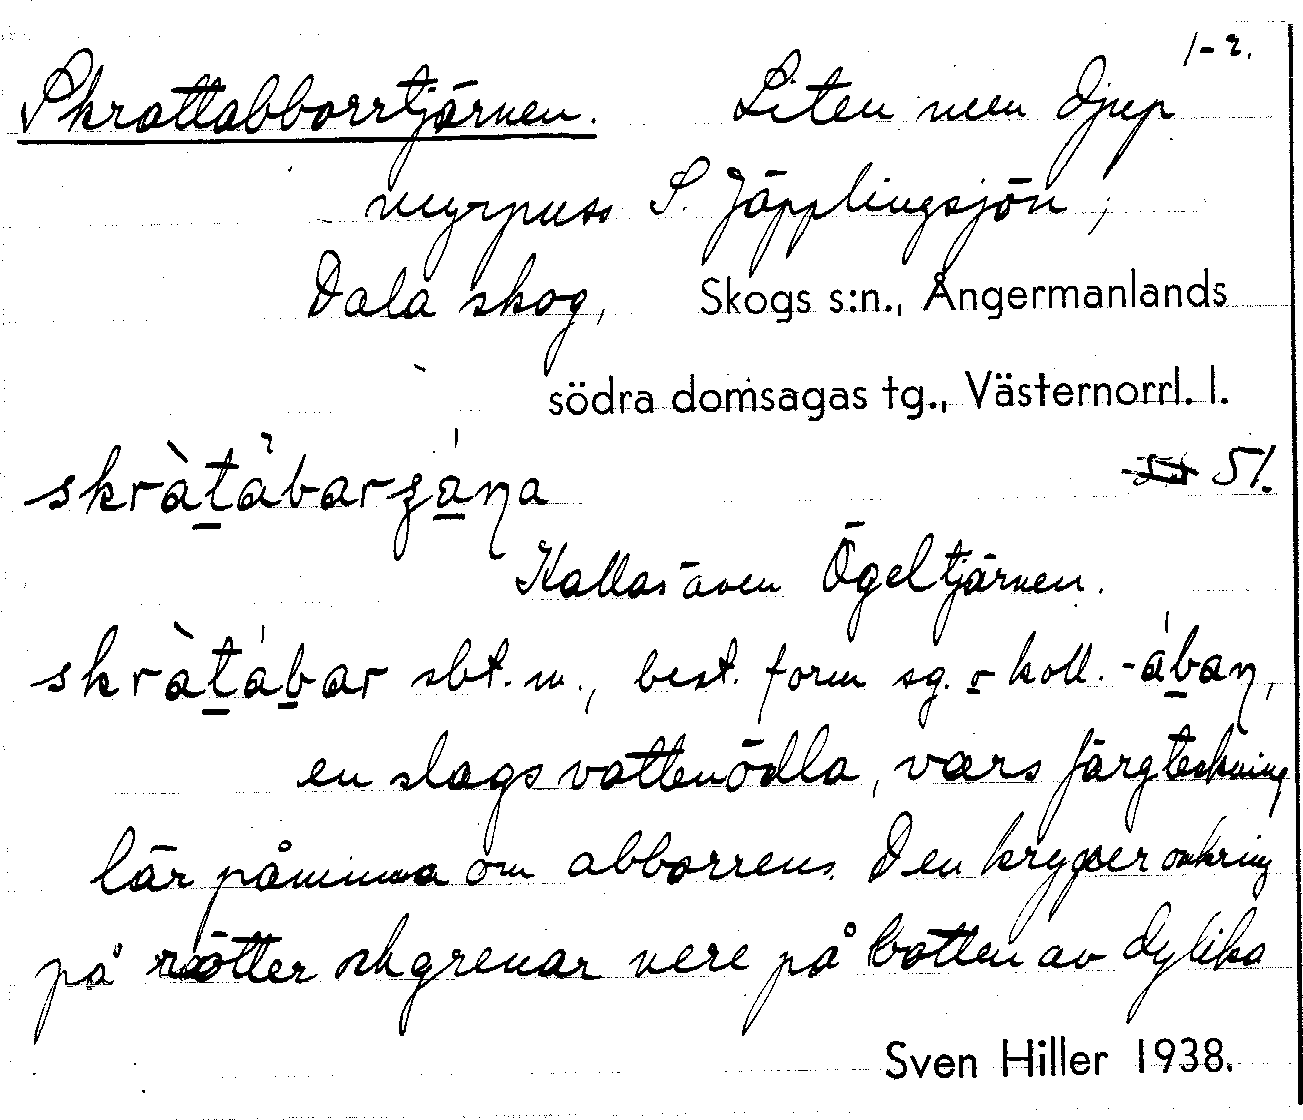 1-2.
Skrattabborrtjärnen. Liten men djup
myrpuss S. Jäpplingsjön,
Dala skog, Skogs s:n., Ångermanlands
södra domsagas tg., Västernorrl. l.
51.
Kallas även Ögeltjärnen.
skràtábar sbt. m., best. form sg. o koll. -ában,
en slags vattenödla, vars färgteckning
lär påminna om abborrens. Den kryper omkring
på rötter och grenar nere på botten av dylika
Sven Hiller 1938.